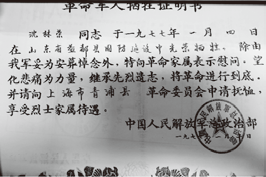 革命军人牺牲证明书
沈林荣 同志于一九七七年一月四日
在山东省 光荣牺牲。除由
我军妥为安葬悼念外，特向革命家属表示慰问，望
化悲痛为力量，继承先烈遗志，将革命进行到底。
并请向上海市青浦县革命委员会申请抚恤，
享受烈士家属待遇。
中国人民解放军 政治部
一九七